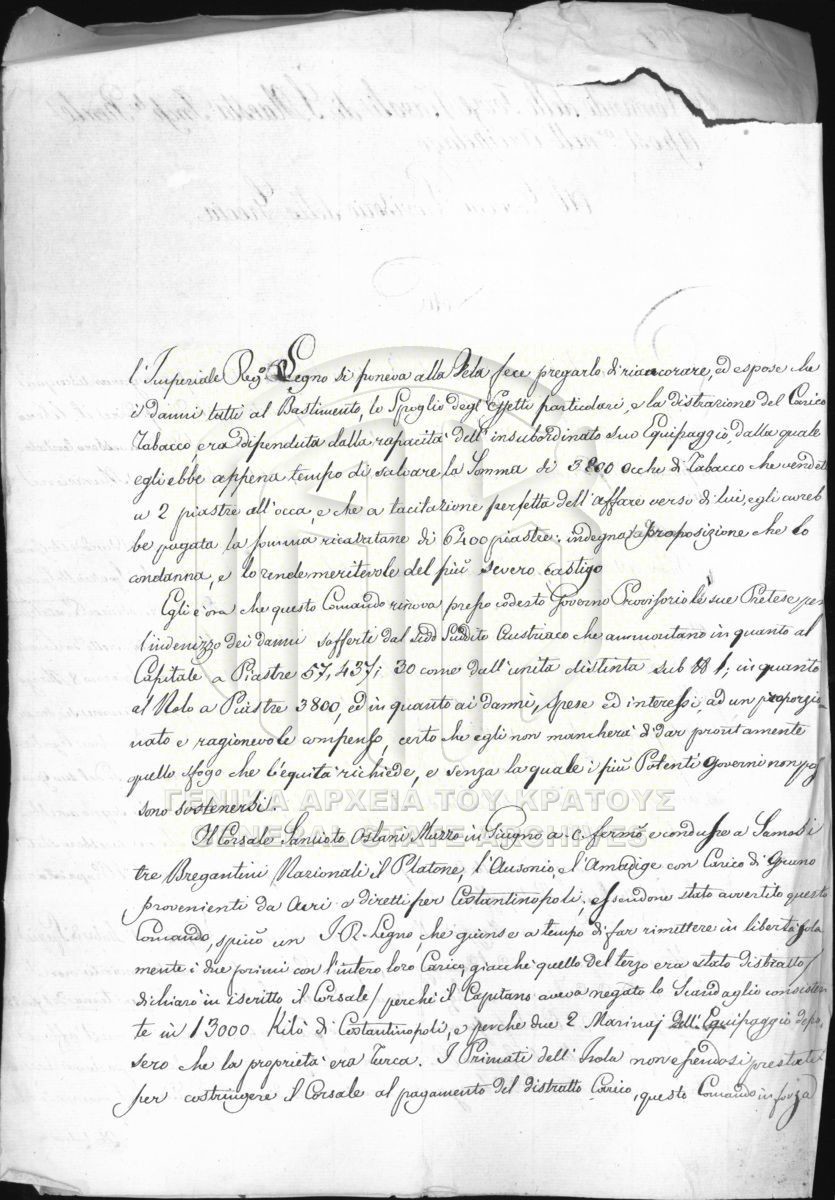 l'Imperiale Reg.o Legno si poneva alla Vela fece pregarlo di riancorare, ed espose che
i danni tutti al Bastimento, lo Spoglio degl'Effetti particolari, e la distrazione del Carico
Tabacco, era dipenduta dalla rapacità dell'insubordinato suo Equipaggio, dalla quale
egli ebbe appena tempo di salvare la Somma di 3200 Ocche di Tabacco che vendett
a 2 piastre all'occa, e che a tacitazione perfetta dell'affare verso di lui, egli avreb
be pagata la somma ricavatane di 6400 piastre: indegna proposizione che lo
condanna, e lo rende meritevole del più severo castigo
Egli è ora che questo Comando rinova presso codesto Governo Provisorio le sue Pretese per
l'indenizzo dei danni sofferti dal Suddito Austriaco che ammontano in quanto al
Capitale a Piastre 57,437; 30 come dall'unita distinta sub 1; in quanto
al Nolo a Piastre 3800, ed in quanto ai danni, spese ed interessi, ad un proporzio-
nato e ragionevole compenso, certo che egli non mancherà di dar prontamente
quello sfogo che l'equità richiede, e senza la quale i più Potenti Governi non pos
sono sostenersi.
ΓΕΝΙΚΑ ΑΡΧΕΙΑ ΤΟΥ ΚΡΑΤΟΥΣ
GENERAL STATE ARCHIVES
Il Corsale in Giugno a. c. fermò e condusse a
tre Bregantini Nazionali il Platone, l'Ausonio, e l'Amadige con Carico di Grano
provenienti da e diretti per Costantinopoli; essendone stato avvertito questo
Comando, spicò un I. R. Legno, che giunse a tempo di far rimettere in libertà sola
mente i due primi con l'intero loro Carico, giacchè quello del terzo era stato distratto /
dichiarò in iscritto il Corsale / perchè il Capitano aveva negato lo Scandaglio consisten
te in 13000 Kilò di Costantinopoli, e perche due 2 Marinaj dell'Equipaggio depo,
sero che la proprietà era Turca. I Primati dell'Isola non essendosi prestati
per costringere il Corsale al pagamento del distratto Carico, questo Comando in forza